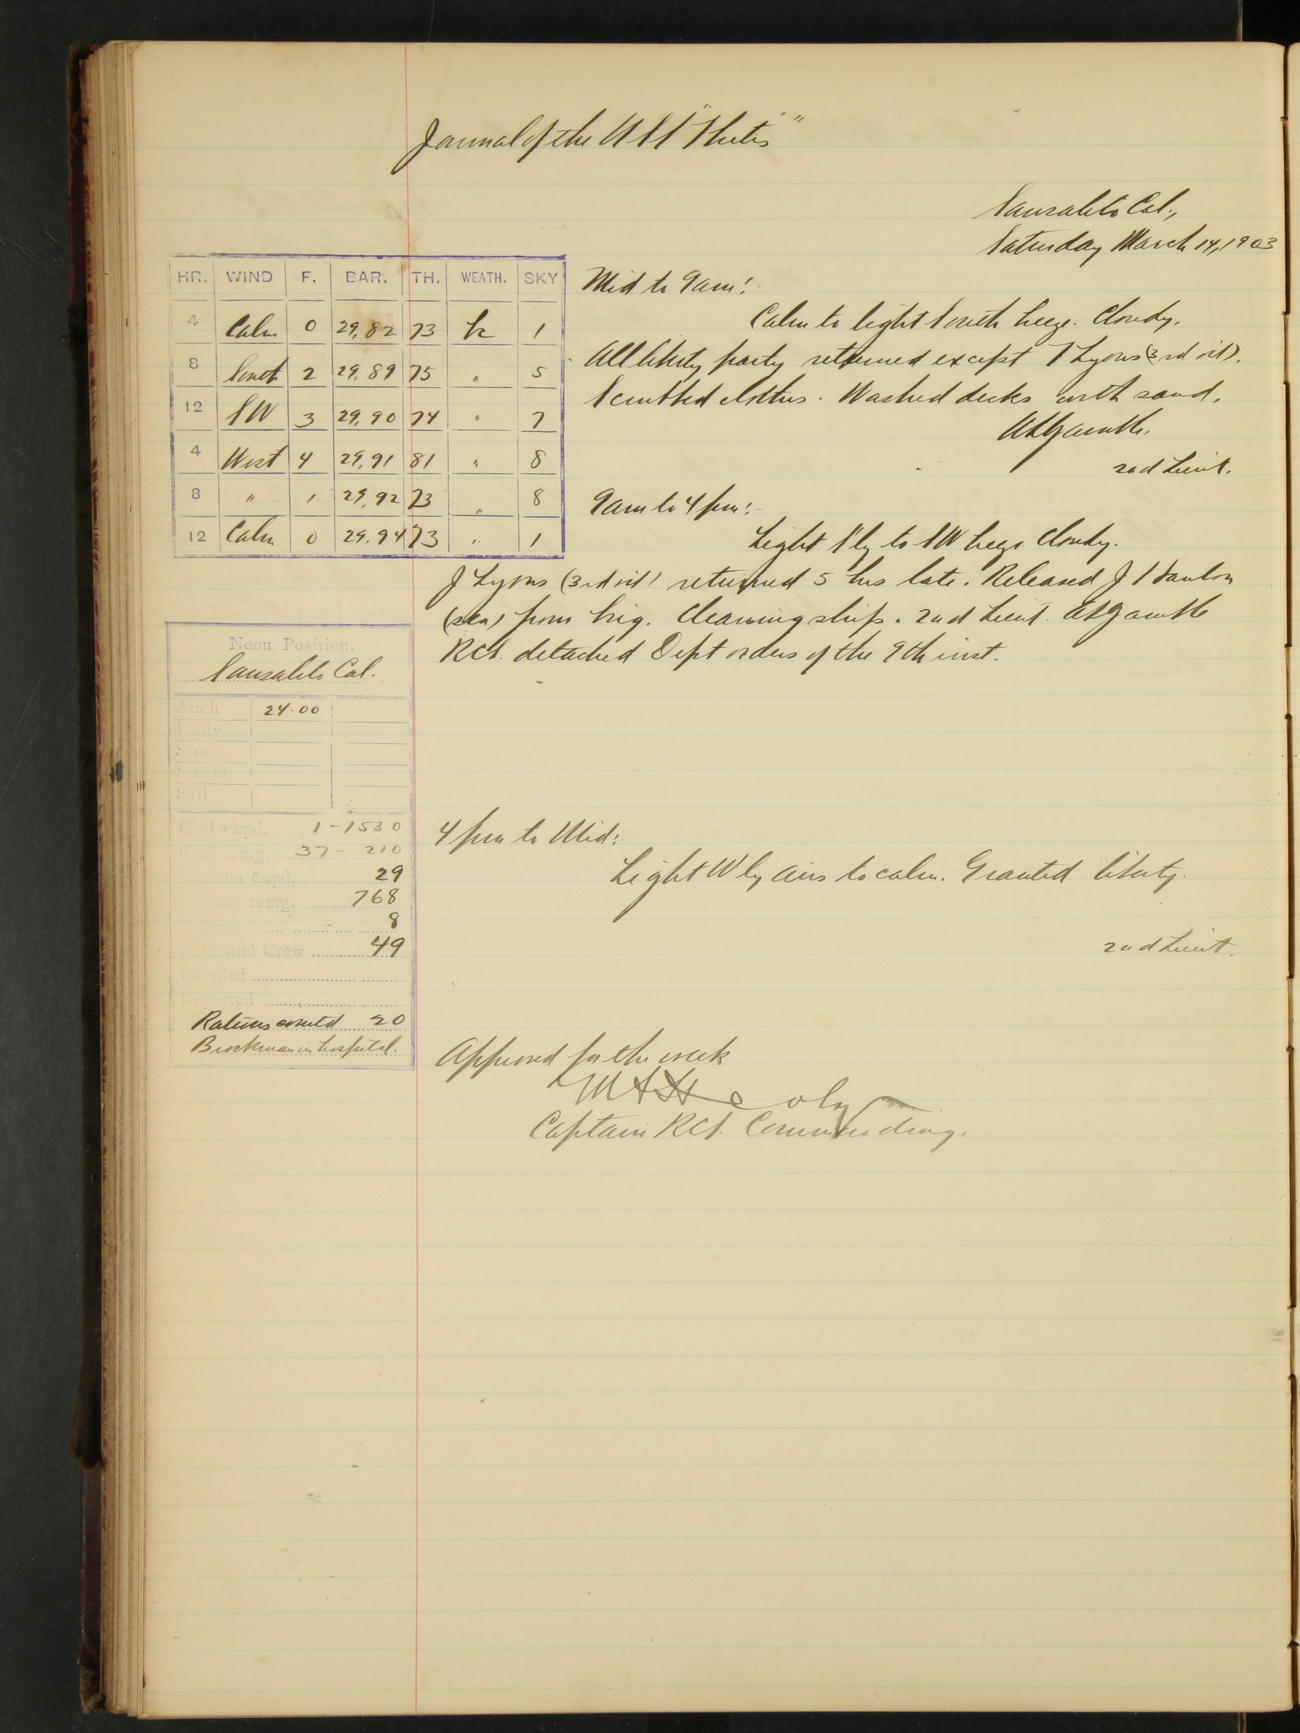 Journal of the USS "Thetis"
Sausalito Cal.,
Saturday March 14, 1903
HR. WIND F. BAR. TH. WEATH. SKY
4 Calm 0 29.82 73 bc 1
8 South 2 29.89 75 " 5
12 SW 3 29.90 74 " 7
4 West 4 29.91 81 " 8
8 " 1 29.92 73 " 8
12 Calm 0 29.94 73 " 1
Mid to 9am:
Calm to light South breeze. Cloudy.
All liberty party returned except J Lyons (3rd oil).
Scrubbed clothes. Washed decks with sand.
AHGamble.
2nd Lieut.
9am to 4 pm:-
Light S'ly to SW breeze. Cloudy.
J Lyons (3rd oil) returned 5 hrs late. Released J
(sea) from brig. Cleaning ship. 2nd Lieut. Gamble
RCS. detached Dept orders of the 9th inst.
Noon Position.
Sausalito Cal.
Anch 24-00
Sail
Coal expd. 1-1530
37- 210
expd. 29
remg. 768
8
and Crew 49
Boarded
Reported
Rations comutd 20
Brockman in hospital.
4 pm to Mid:
Light W'ly airs to calm. Granted liberty.
2nd Lieut.
Approved for the week
Captain RCS. Commanding.